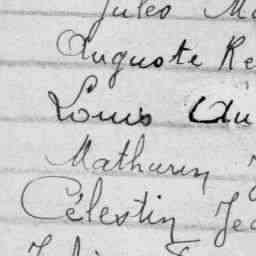 Jules
Auguste Re
Louis Au
Mathurin
Célestin Je